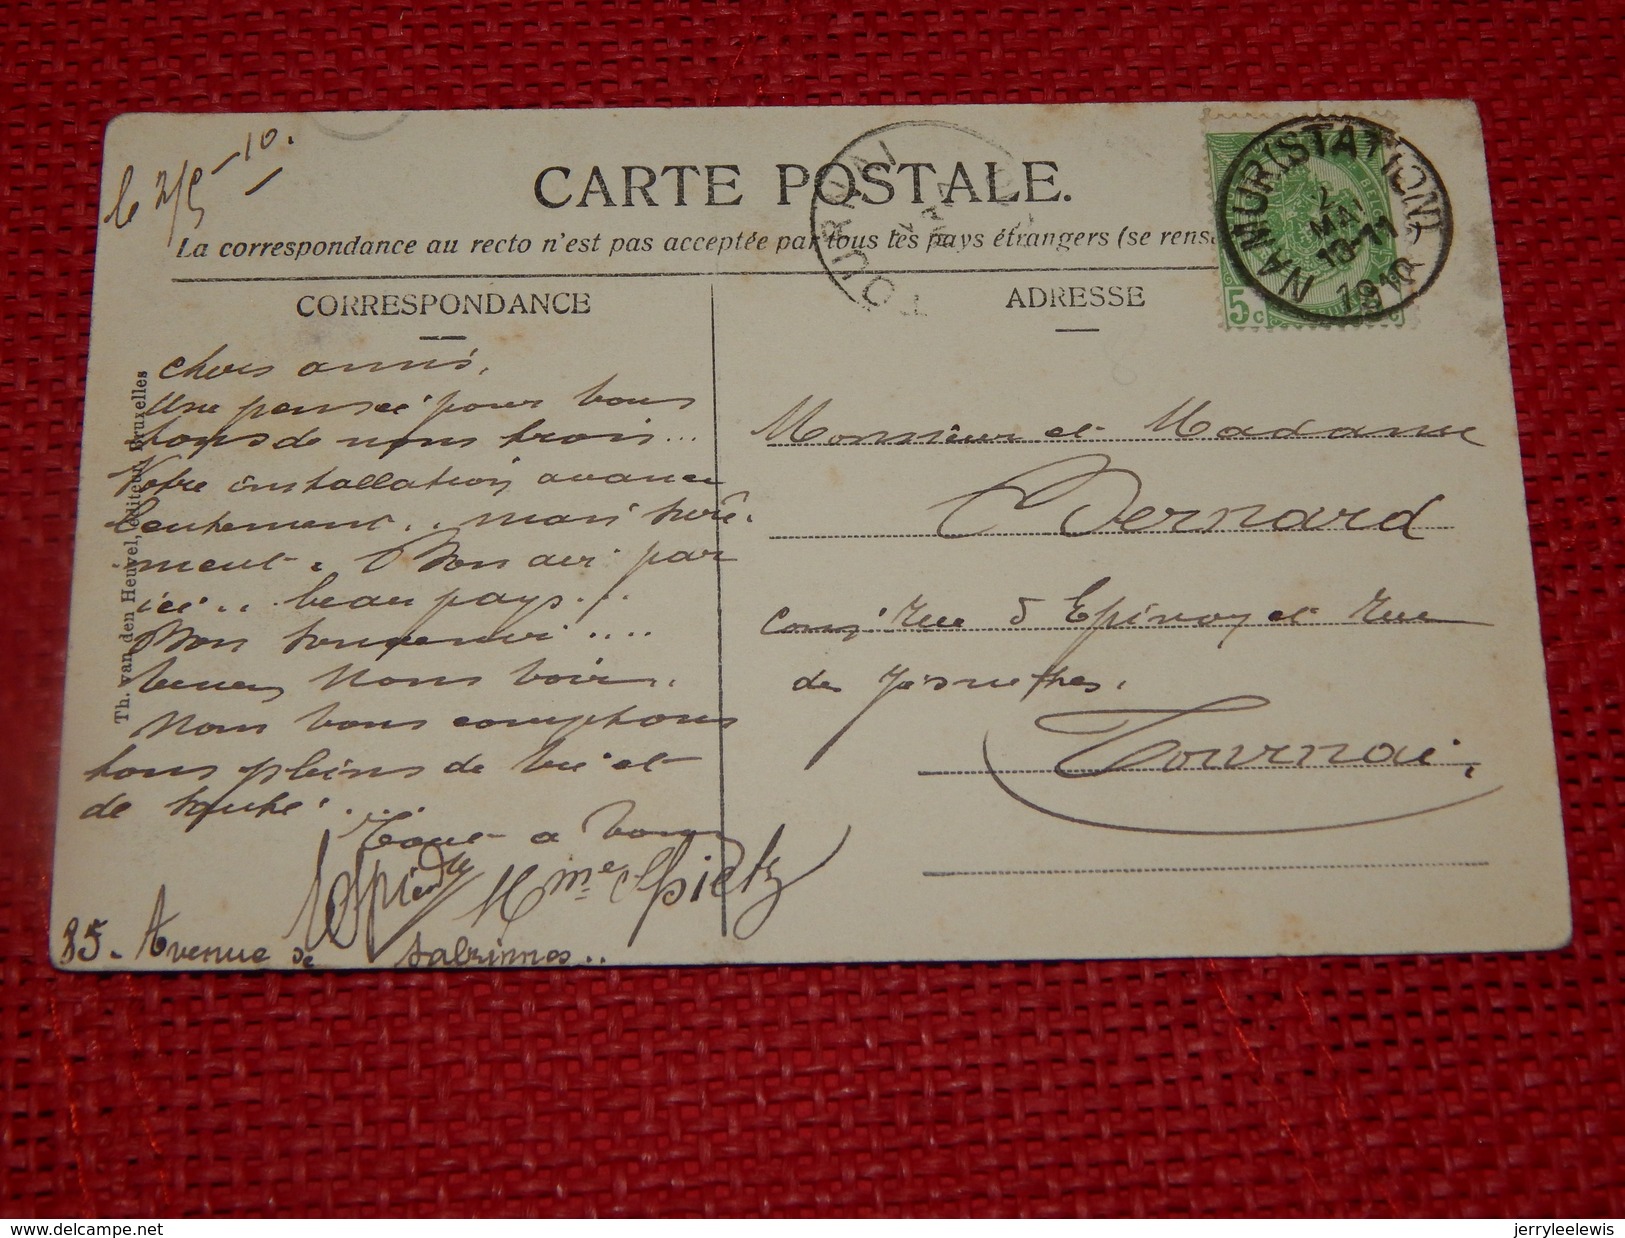 le 2/5-10.
CARTE POSTALE.
La correspondance au recto n'est pas acceptée par tous les pays étrangers (se rens
CORRESPONDANCE
ADRESSE
TOURNAI
NAMUR (STATION)
2
MAI
10-11
1910
5 c
Th. van den Heuvel, éditeur, Bruxelles
Chers amis,
Une pensée pour vous
tous de nous trois...
Votre installation avance
lentement.. mais sûre-
ment. Bon air par
ici.. beau pays...
Bon souvenir....
Venez nous voir.
Nous vous comptons
tous pleins de vie et
de santé...
Tout à vous
Mme Spietz
85. Avenue de Salzinnes..
Monsieur et Madame
Bernard
rue d'Epinoy et rue
des
Tournai.
www.delcampe.net
jerryleelewis